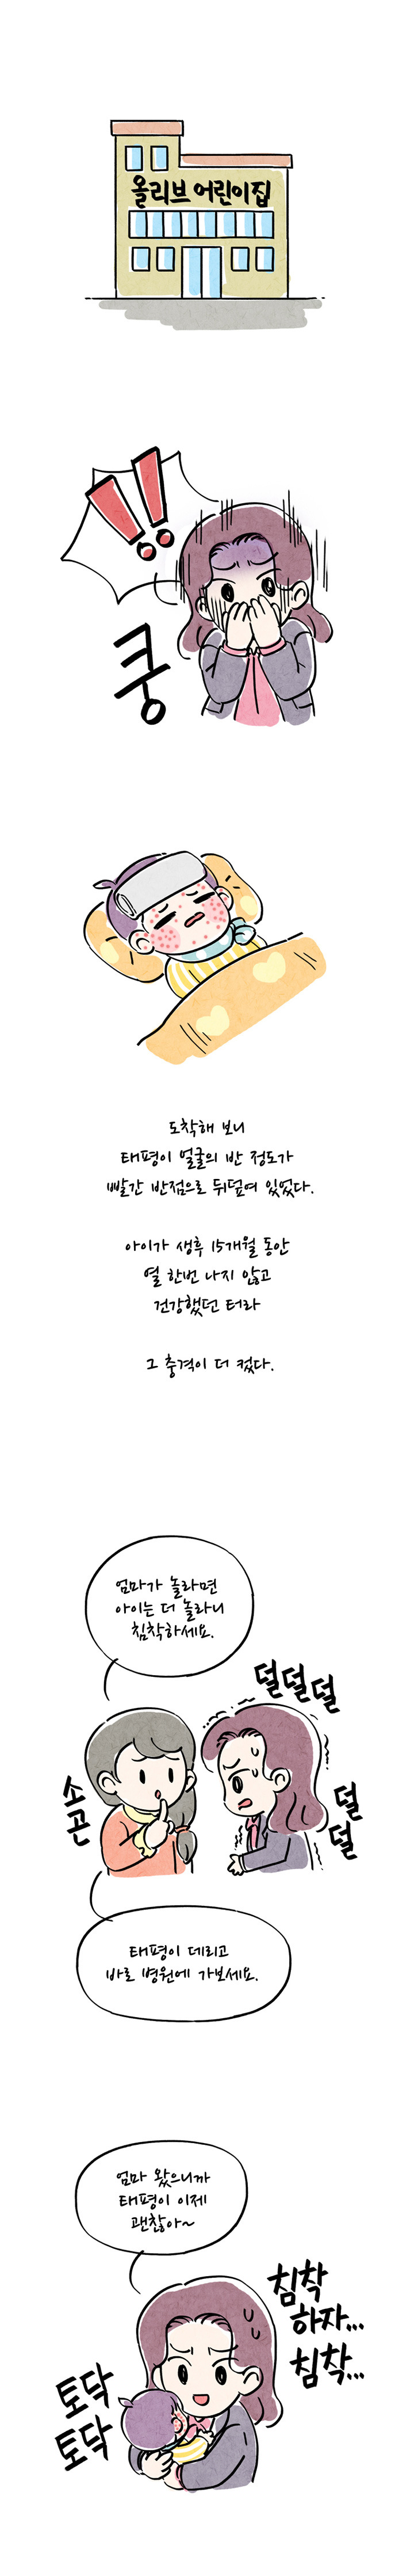 올리브 어린이집
!!
쿵
도착해 보니
태평이 얼굴의 반 정도가
빨간 반점으로 뒤덮여 있었다.
아이가 생후 15개월 동안
열 한번 나지 않고
건강했던 터라
그 충격이 더 컸다.
엄마가 놀라면
아이는 더 놀라니
침착하세요.
덜덜덜
소곤
덜
덜
태평이 데리고
바로 병원에 가보세요.
엄마 왔으니까
태평이 이제
괜찮아~
침착
하자...
침착...
토닥
토닥